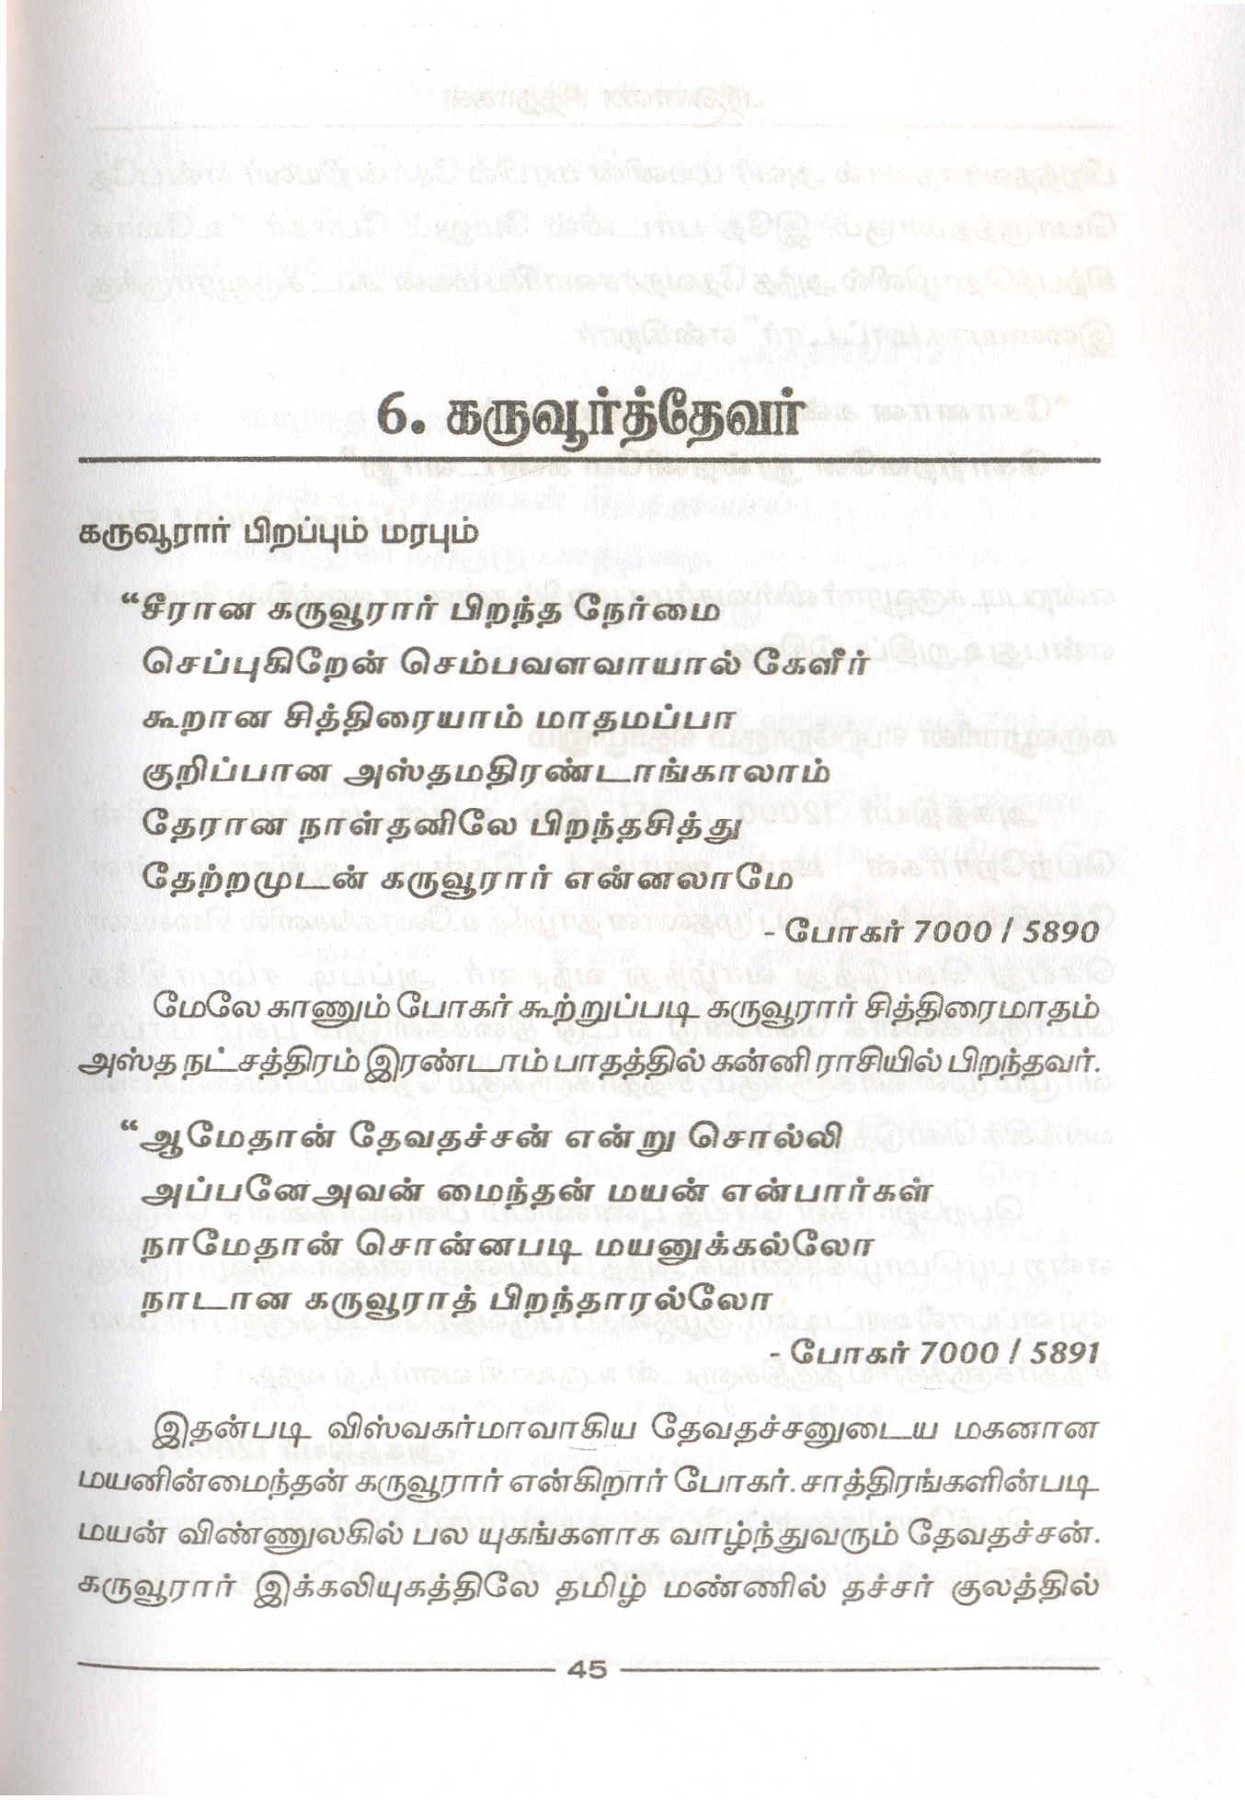 6. கருவூர்த்தேவர்
கருவூரார் பிறப்பும் மரபும்
“சீரான கருவூரார் பிறந்த நேர்மை
செப்புகிறேன் செம்பவளவாயால் கேளீர்
கூறான சித்திரையாம் மாதமப்பா
குறிப்பான அஸ்தமதிரண்டாங்காலாம்
தேரான நாள்தனிலே பிறந்தசித்து
தேற்றமுடன் கருவூரார் என்னலாமே
- போகர் 7000 / 5890
மேலே காணும் போகர் கூற்றுப்படி கருவூரார் சித்திரைமாதம்
அஸ்த நட்சத்திரம் இரண்டாம் பாதத்தில் கன்னி ராசியில் பிறந்தவர்.
“ஆமேதான் தேவதச்சன் என்று சொல்லி
அப்பனேஅவன் மைந்தன் மயன் என்பார்கள்
நாமேதான் சொன்னபடி மயனுக்கல்லோ
நாடான கருவூராத் பிறந்தாரல்லோ
- போகர் 7000 / 5891
இதன்படி விஸ்வகர்மாவாகிய தேவதச்சனுடைய மகனான
மயனின்மைந்தன் கருவூரார் என்கிறார் போகர். சாத்திரங்களின்படி
மயன் விண்ணுலகில் பல யுகங்களாக வாழ்ந்துவரும் தேவதச்சன்.
கருவூரார் இக்கலியுகத்திலே தமிழ் மண்ணில் தச்சர் குலத்தில்
45